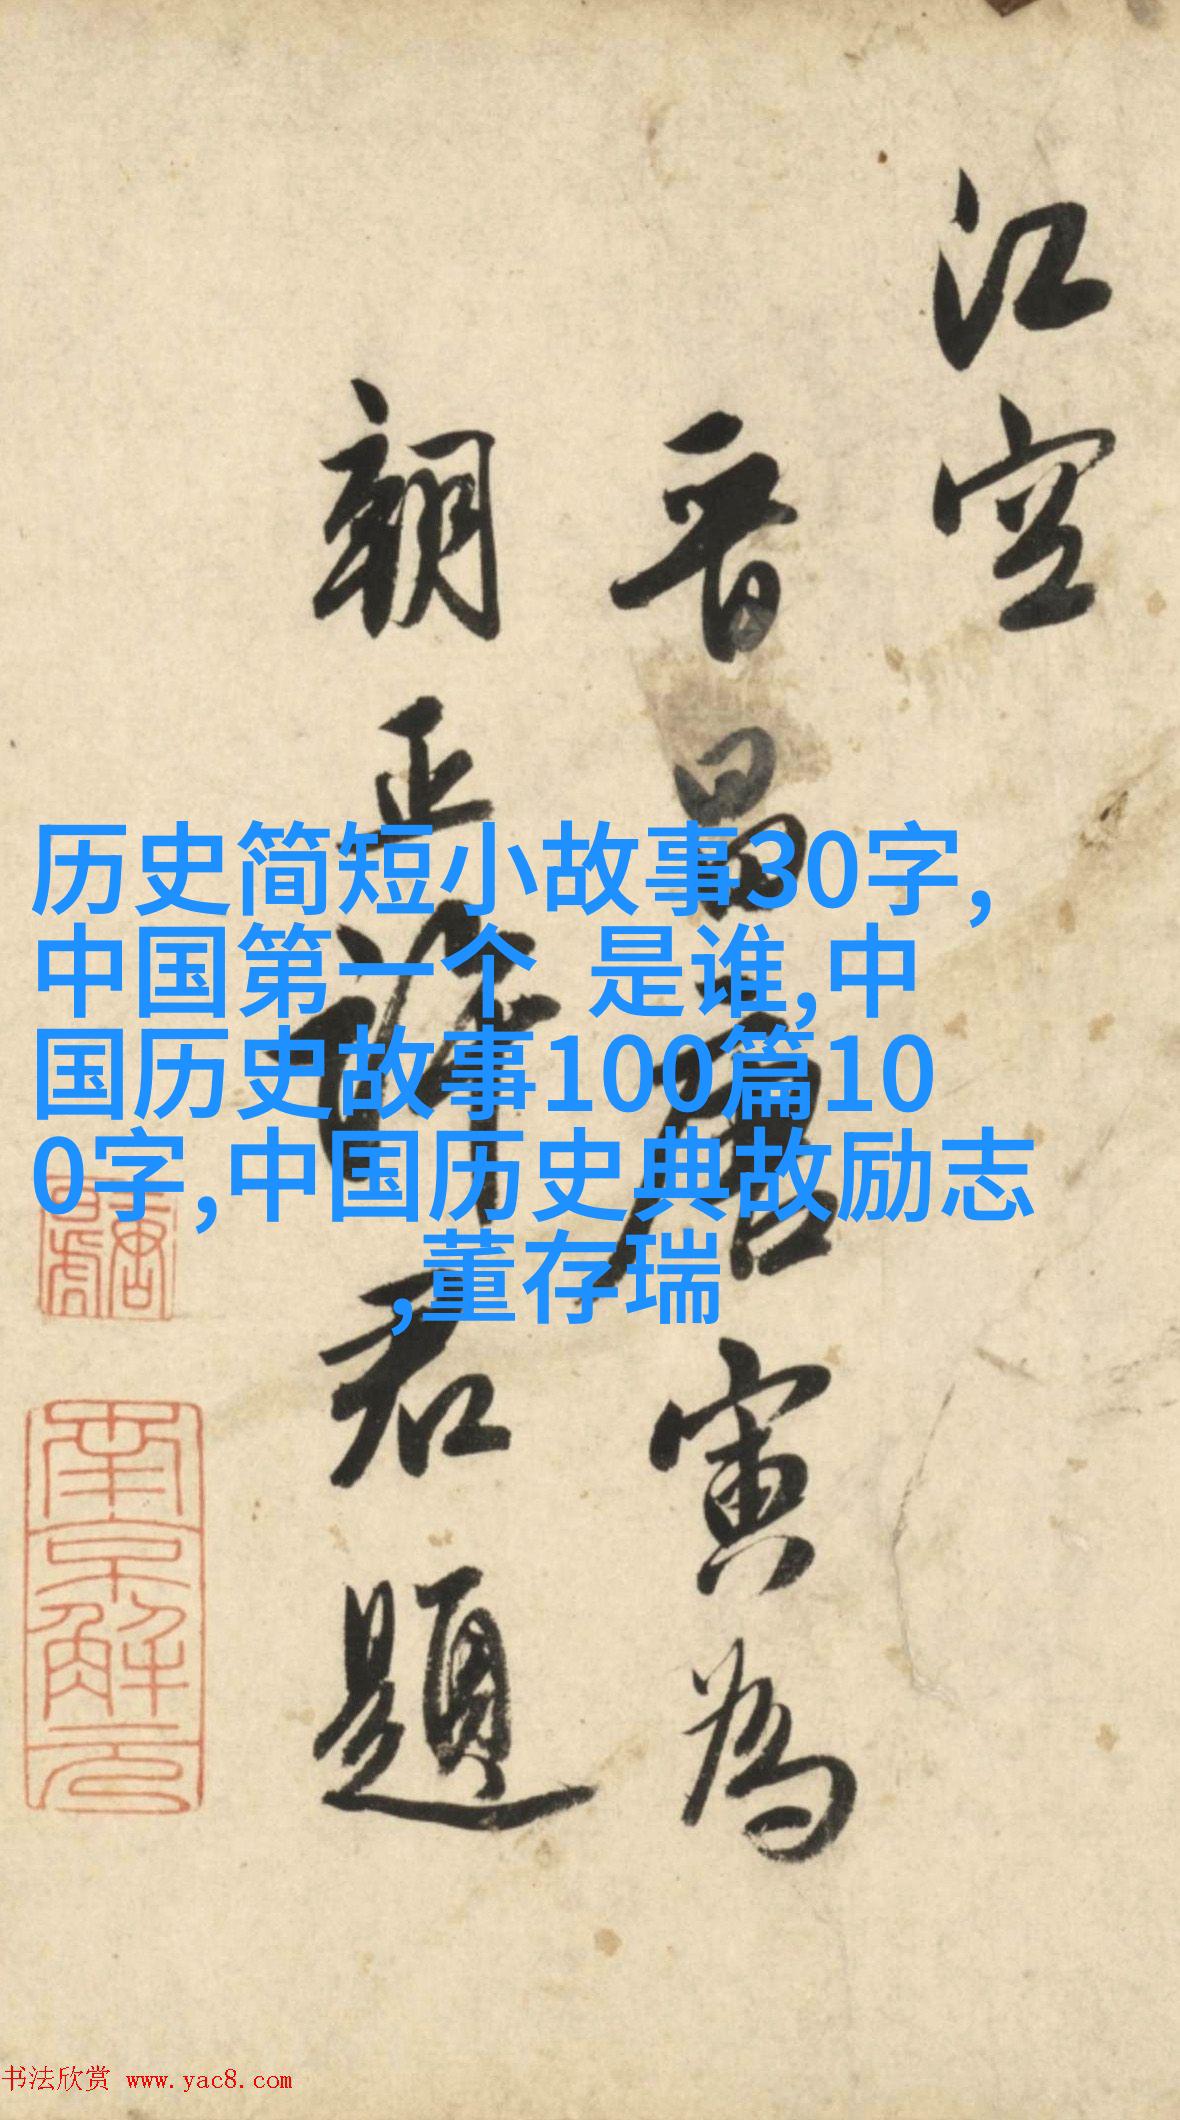 江空
晋昌唐寅为
朝正许君题
历史简短小故事30字,
中国第一个 是谁,中
国历史故事100篇10
0字,中国历史典故励志
,董存瑞
南京解元
书法欣赏 www.yac8.com